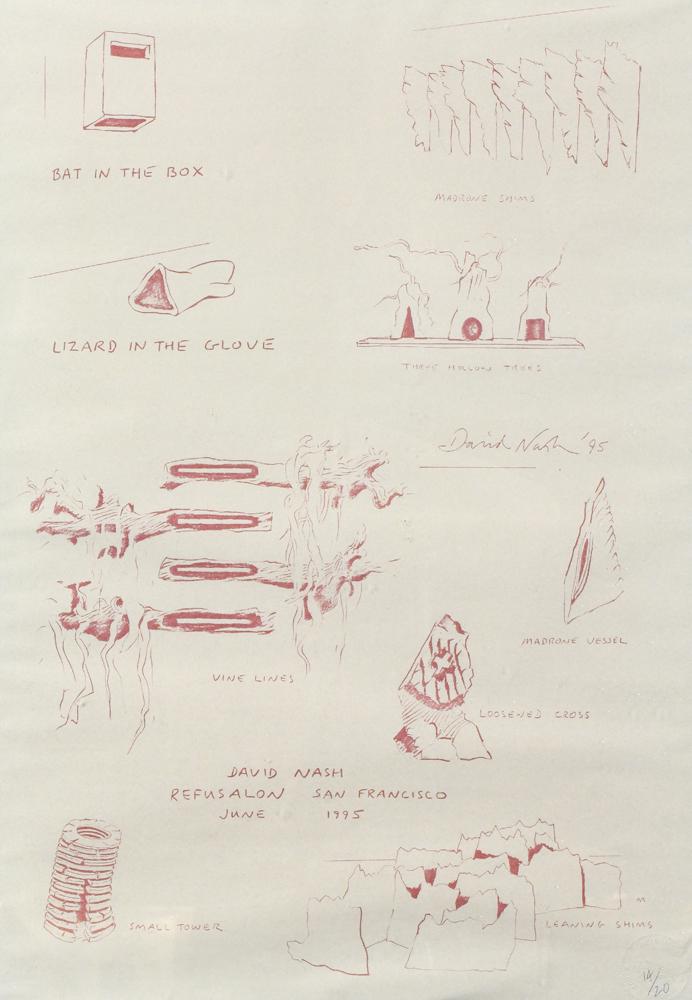 BAT IN THE BOX
MADRONE SHIMS
LIZARD IN THE GLOVE
THREE HOLLOW TREES
David Nash '95
MADRONE VESSEL
VINE LINES
LOOSENED CROSS
DAVID NASH
REFUSALON SAN FRANCISCO
JUNE 1995
SMALL TOWER
LEANING SHIMS
14/20